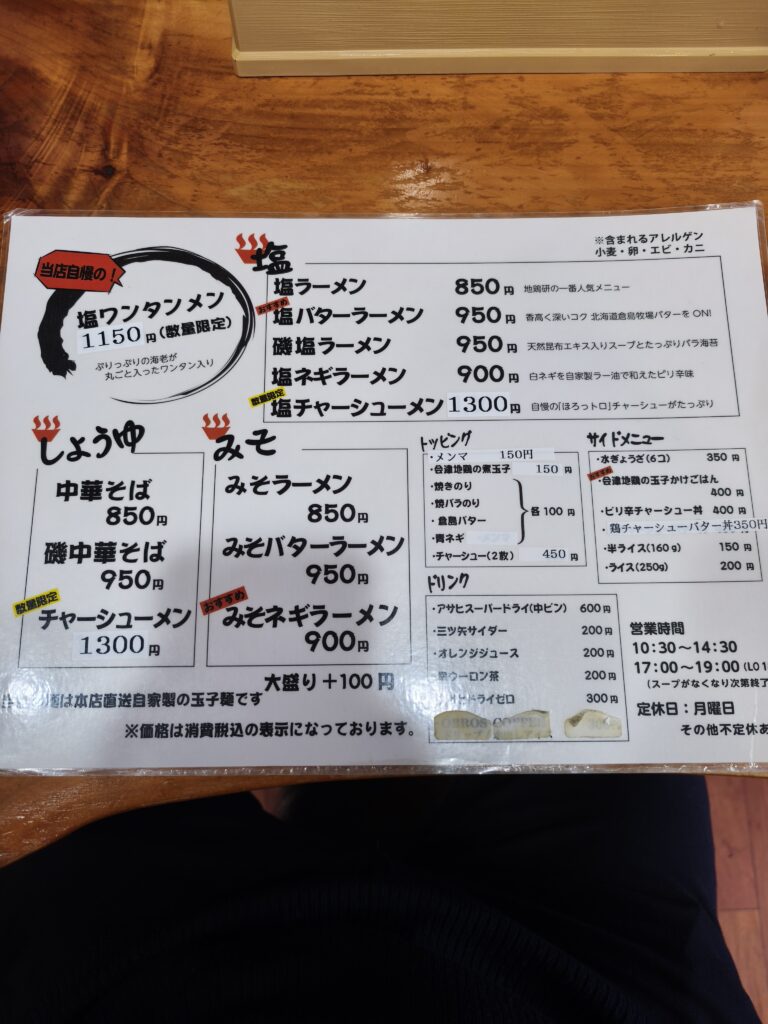 当店自慢の!
塩ワンタンメン
1150円(数量限定)
ぷりっぷりの海老が
丸ごと入ったワンタン入り
※含まれるアレルゲン
小麦・卵・エビ・カニ
塩
塩ラーメン 850円 地鶏研の一番人気メニュー
おすすめ
塩バターラーメン 950円 香高く深いコク 北海道倉島牧場バターをON!
磯塩ラーメン 950円 天然昆布エキス入りスープとたっぷりバラ海苔
塩ネギラーメン 900円 白ネギを自家製ラー油で和えたピリ辛味
数量限定
塩チャーシューメン 1300円 自慢の「ほろっトロ」チャーシューがたっぷり
しょうゆ
中華そば
850円
磯中華そば
950円
数量限定
チャーシューメン
1300円
みそ
みそラーメン
850円
みそバターラーメン
950円
おすすめ
みそネギラーメン
900円
大盛り+100円
トッピング
・メンマ 150円
・会津地鶏の煮玉子 150円
・焼きのり
・焼バラのり
・倉島バター
・青ネギ
各100円
・チャーシュー(2枚) 450円
サイドメニュー
・水ぎょうざ(6コ) 350円
おすすめ
・会津地鶏の玉子かけごはん
400円
・ピリ辛チャーシュー丼 400円
・鶏チャーシューバター丼350円
・半ライス(160g) 150円
・ライス(250g) 200円
ドリンク
・アサヒスーパードライ(中ビン) 600円
・三ツ矢サイダー 200円
・オレンジジュース 200円
ウーロン茶 200円
ドライゼロ 300円
営業時間
10:30〜14:30
17:00〜19:00(LO
(スープがなくなり次第終了
定休日:月曜日
その他不定休あ
は本店直送自家製の玉子麺です
※価格は消費税込の表示になっております。